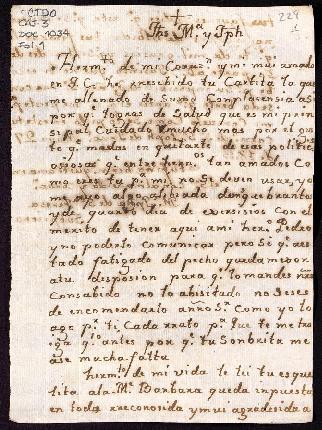 CTDO
CAJ. 3
DOC 1034
Fol. 1
228
1
+
Jhs Mª y Jph
Hermº de mi Corazn y mi mui amado
en J.C. he rresebido tu Cartita la que
me allenado de Suma Complasensia asi
por qe logras de Salud que es mi prin
sipal Cuidado y mucho mas por el gus
te qe me das en quitarte de esas politicas
osiosas qe entre hermnos tan amados Co
mo eres tu pª mi no Se deven usar, yo
me allo algo aliviada de mi quebranto
y de quarto dia de exersisios con el
merito de tener aqui a mi hermº Pedro
y no poderlo comunicar pero Si qe es
tado fatigado del pecho queda mejor
a tu disposion para qe lo mandes nro
Consabido no lo a bisitado no Seses
de encomendarlo a nro Sr Como yo lo
ago pr ti Cada rrato pr que te me tra
iga qto antes por qe tu Sonbrita me
ase mucha falta
hermº de mi vida le lei tu esque
lita a la Me Barbara queda inpuesta
en todo rreconosida y mui agradesida a